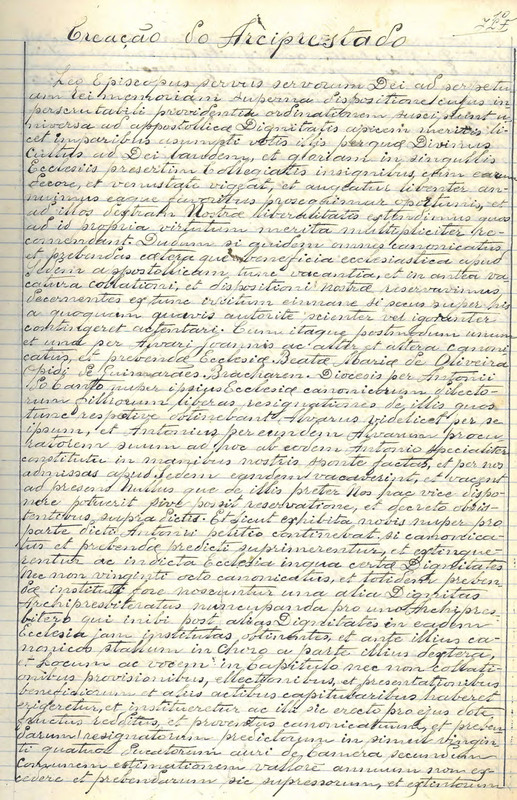 Creação do Arciprestado
Leo Episcopus servus servorum Dei ad perpetu
am rei memoriam superna dispositione cujus in
perscrutabili providentia ordinationem suscipiunt u
niversa ad appostollicæ Dignitatis apicem meritis li
cet imparibus asumpti votis illis per quæ Divinus
Cultus ad Dei laudem, et gloriam in singullis
Ecclesiis presertim Collegiatis insignibus, cum earum
decore, et venustate vigeat, et augeatur libenter an
nuimus eaque favoribus prosequimur oportunis, et
ad illos dextram Nostræ liberalitatis extendimus quos
ad id propria virtutum merita multipliciter re
comendant. Dudum si quidem omnes canonicatus
et prebendas cætera que beneficia ecclesiastica apud
Sedem appostollicam, tunc vacantia, et in antea va
catura collationi, et dispositioni nostræ reservavimus
decernentes ex tunc irritum et inane si secus super his
a quoquam quavis autorite scienter vel ignoranter
contingeret actentari. Cum itaque postmodum unum
et una per Alvari Joannis ac alter et altera canoni
catus, et prebendæ Ecclesiæ Beatæ Mariæ de Oliveira
Opidi de Guimaraes Bracharem. Diocesis per Antonii
do Canto nuper ipsius Ecclesiæ canonicorum dilecto
rum filliorum liberas resignationes de illis quos
tunc respetive obtinebant Alvarus videlicet per se
ipsum, et Antonius per eundem Alvarum procu
ratorem suum ad hoc ab eodem Antonio specialiter
constitutu in manibus nostris sponte factas, et per nos
admissas apud Sedem eandem vacaverint, et vacent
ad presens nullus que de illis preter Nos hac vice dispo
nere potuerit sive possit reservatione, et decreto obsis
tentibus supra dictis. Et sicut exhibita nobis nuper pro
parte dicti Antonii petitio continebat, si canonica
tus et prebendæ predicti suprimerentur, et extingue
rentur ac indicta Ecclesia in qua certæ Dignitates
nec non vinginti octo canonicatus, et totidem preben
dæ institutæ fore noscuntur una alia Dignitas
Archipresbiteratus nuncupanda pro uno Archipres
bitero qui inibi post alias Dignitates in eadem
Ecclesia jam institutas obtinentes, et ante illius ca
nonicos stallum in choro a parte illius dextera,
et Locum ac vocem in Capitulo nec non collati
onibus provisionibus, ellectionibus, et presentationibus
beneficiorum et aliis actibus capitularibus haberet
erigeretur, et institueretur ac illi sic erecto pro ejus dote
fructus redditus, et proventus canonicatuum, et preben
darum resignatorum predictorum in simul vingin
ti quatuor Ducatorum auri de Camera secundum
comunem estimationem vallore annuum non ex
cedere et prebendarum sic supressorum, et extintorum